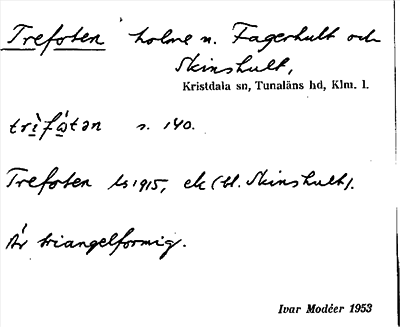 Trefoten holme n. Fagerhult och
Skinshult,
Kristdala sn, Tunaläns hd, Klm. l.
trì fώtən s. 140.
Trefoten ls 1915, ek (bl. Skinshult).
Är triangelformig.
Ivar Modéer 1953